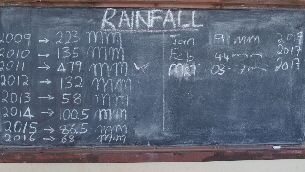 RAINFALL
2009 → 223 mm
2010 → 135 mm
2011 → 479 mm
2012 → 132 mm
2013 → 58 mm
2014 → 100.5 mm
2015 → 86.5 mm
2016 → 68 mm
Jan 91 mm 2017
Feb 44 mm 2017
08 mm 2017